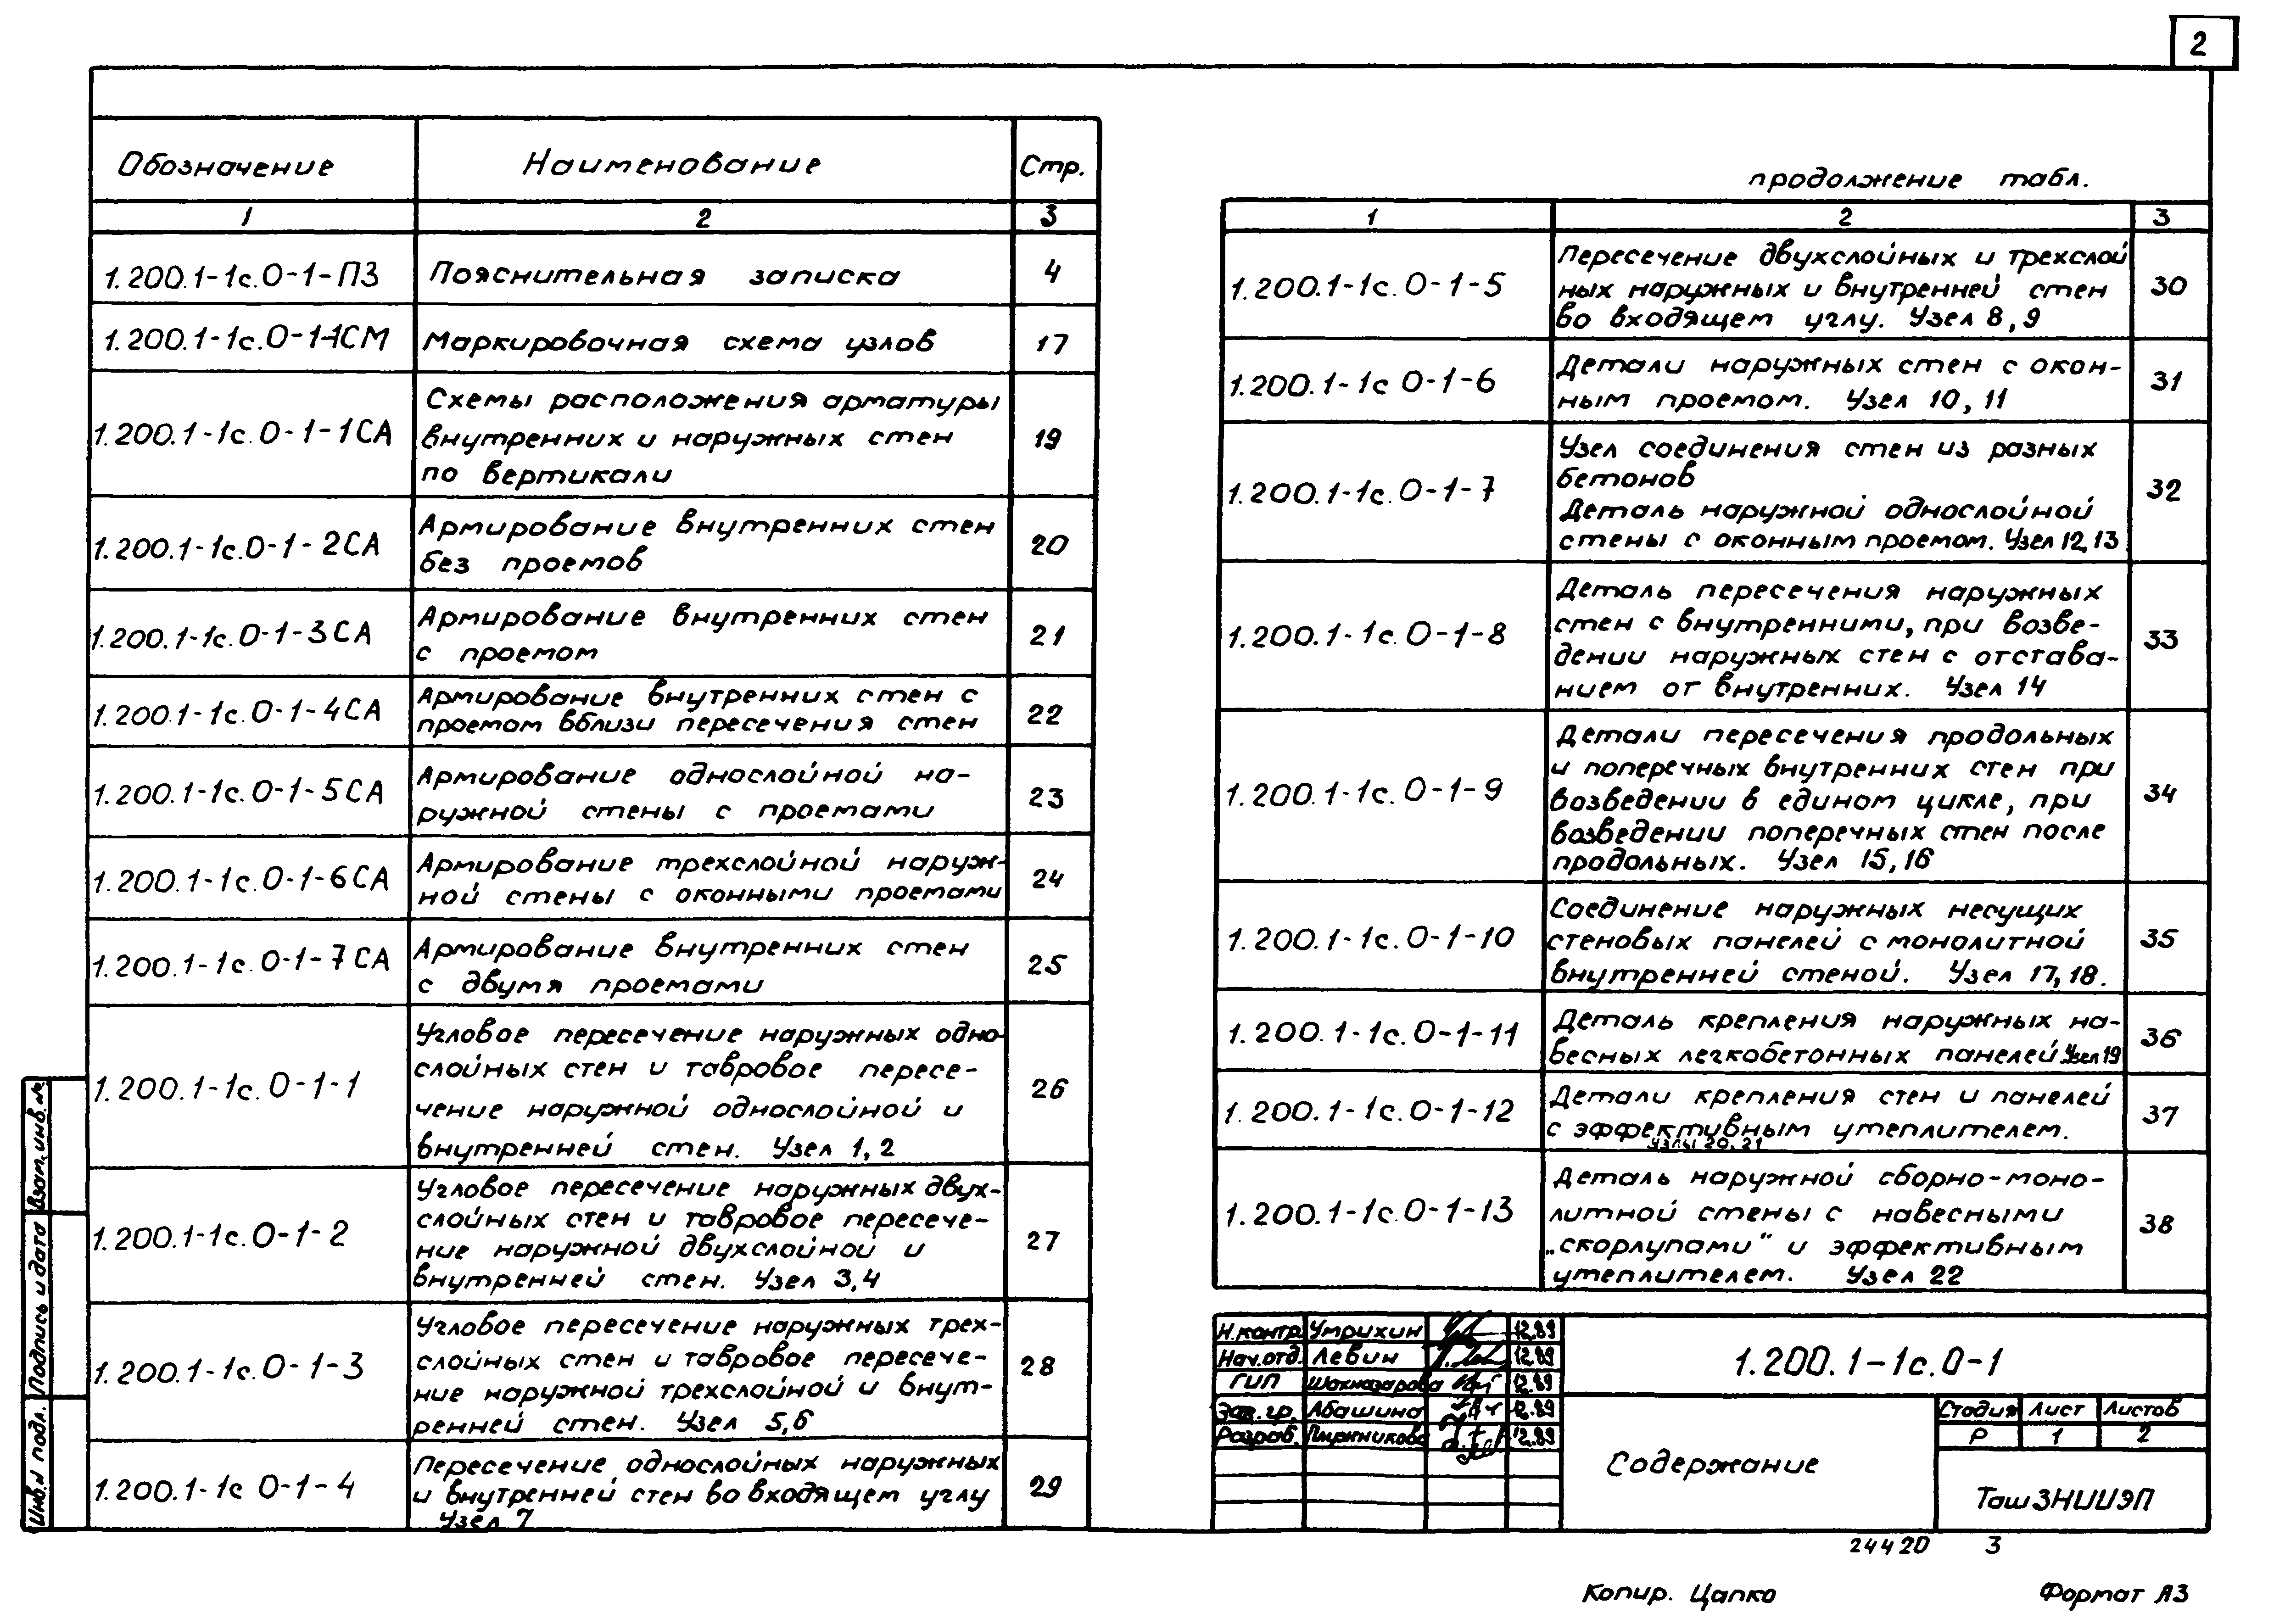 2
Обозначение Наименование Стр.
1 2 3
1.200.1-1с.0-1-ПЗ Пояснительная записка 4
1.200.1-1с.0-1-1СМ Маркировочная схема узлов 17
Схемы расположения арматуры
1.200.1-1с.0-1-1СА внутренних и наружных стен 19
по вертикали
Армирование внутренних стен
1.200.1-1с.0-1-2СА 20
без проемов
Армирование внутренних стен
1.200.1-1с.0-1-3СА 21
с проемом
Армирование внутренних стен с
1.200.1-1с.0-1-4СА 22
проемом вблизи пересечения стен
Армирование однослойной на-
1.200.1-1с.0-1-5СА 23
ружной стены с проемами
Армирование трехслойной наруж-
1.200.1-1с.0-1-6СА 24
ной стены с оконными проемами
Армирование внутренних стен
1.200.1-1с.0-1-7СА 25
с двумя проемами
Угловое пересечение наружных одно-
слойных стен и тавровое пересе-
1.200.1-1с.0-1-1 26
чение наружной однослойной и
внутренней стен. Узел 1,2
Угловое пересечение наружных двух-
слойных стен и тавровое пересече-
1.200.1-1с.0-1-2 27
ние наружной двухслойной и
внутренней стен. Узел 3,4
Угловое пересечение наружных трех-
слойных стен и тавровое пересече-
1.200.1-1с.0-1-3 28
ние наружной трехслойной и внут-
ренней стен. Узел 5,6
Пересечение однослойных наружных
1.200.1-1с 0-1-4 и внутренней стен во входящем углу 29
Узел 7
продолжение табл.
1 2 3
Пересечение двухслойных и трехслой
1.200.1-1с.0-1-5 ных наружных и внутренней стен 30
во входящем углу. Узел 8,9
Детали наружных стен с окон-
1.200.1-1с 0-1-6 31
ным проемом. Узел 10,11
Узел соединения стен из разных
бетонов
1.200.1-1с.0-1-7 32
Деталь наружной однослойной
стены с оконным проемом. Узел 12,13
Деталь пересечения наружных
стен с внутренними, при возве-
1.200.1-1с.0-1-8 33
дении наружных стен с отстава-
нием от внутренних. Узел 14
Детали пересечения продольных
и поперечных внутренних стен при
1.200.1-1с.0-1-9 возведении в едином цикле, при 34
возведении поперечных стен после
продольных. Узел 15,16
Соединение наружных несущих
1.200.1-1с.0-1-10 стеновых панелей с монолитной 35
внутренней стеной. Узел 17,18.
Деталь крепления наружных на-
1.200.1-1с.0-1-11 36
весных легкобетонных панелей Узел 19
Детали крепления стен и панелей
1.200.1-1с.0-1-12 37
с эффективным утеплителем.
Узлы 20,21
Деталь наружной сборно-моно-
1.200.1-1с.0-1-13 литной стены с навесными 38
„скорлупами“ и эффективным
утеплителем. Узел 22
Н.контр. Умрихин 12.89
Нач.отд. Левин 12.89
ГИП Шахназарова 12.89
Зав.гр. Абашина 12.89
Разраб. 12.89
1.200.1-1с.0-1
Содержание
Стадия Лист Листов
Р 1 2
ТашЗНИИЭП
Инв.N подл. Подпись и дата Взам.инв.№
24420 3
Копир. Цапко Формат А3